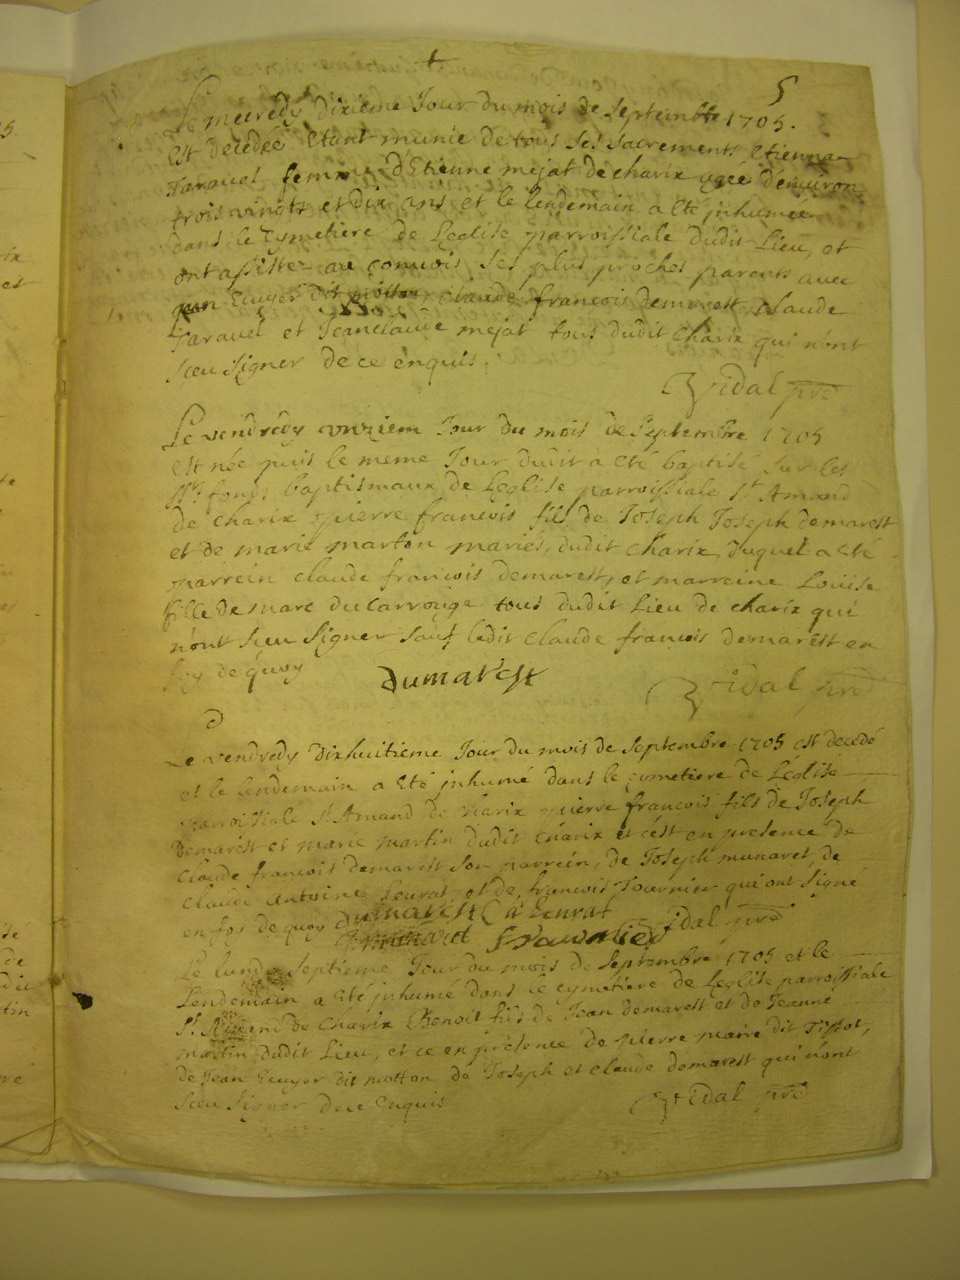 5
Le mecredy dixieme Jour du mois de Septembre 1705.
Est decedée Etant munie de tous Ses Sacrements Etienna
Taravel femme d'Etienne mejat de charix agée d'environ
trois vingts et dix ans et le lendemain a Eté inhumée
dans le Cymetiere de Leglise parroissiale dudit Lieu, et
ont assistez au convois Ses plus proches parents avec
Jean Ecuyer dit motton, Claude francois demarest Claude
Taravel et Jeanclaude mejat tous dudit Charix qui n'ont
Sceu Signer de ce enquis.
Vidal pre
Le vendredy unziem Jour du mois de Septembre 1705
est née puis le meme Jour dudit a eté baptisé Sur les
Sts fonds baptismaux de Leglise parroissiale St Amand
de charix pierre francois fils de Joseph Joseph demarest
et de marie marton mariés, dudit Charix, duquel a eté
parrein claude francois demarest, et marreine Louise
fille de marc ducarrouge tous dudit Lieu de charix qui
n'ont Sceu Signer Sauf ledit claude francois demarest en
foy de quoy
Dumarest
Vidal pre
Le vendredy Dixhuitieme Jour du mois de Septembre 1705 est decedé
et le lendemain a Eté inhumé dans le cymetiere de Léglise
parroissiale St Amand de Charix pierre francois fils de Joseph
Demarest et marie martin dudit charix et c'est en presence de
Claude francois demarest Son parrein, de Joseph munaret, de
Claude Antoine et de francois Tournier qui ont Signé
en foy de quoy Dumarest
munaret f tournier Vidal pre
Le lundy Septieme Jour du mois de Septembre 1705 et le
Lendemain a Eté inhumé dans le cymetiere de Leglise parroissiale
St Amand de Charix Benoit fils de Jean demarest et de Jeanne
martin dudit Lieu, et ce en présence de pierre dit Tissot,
de Jean Ecuyer dit motton de Joseph et Claude demarest qui n'ont
Sceu Signer de ce Enquis
Vidal pre